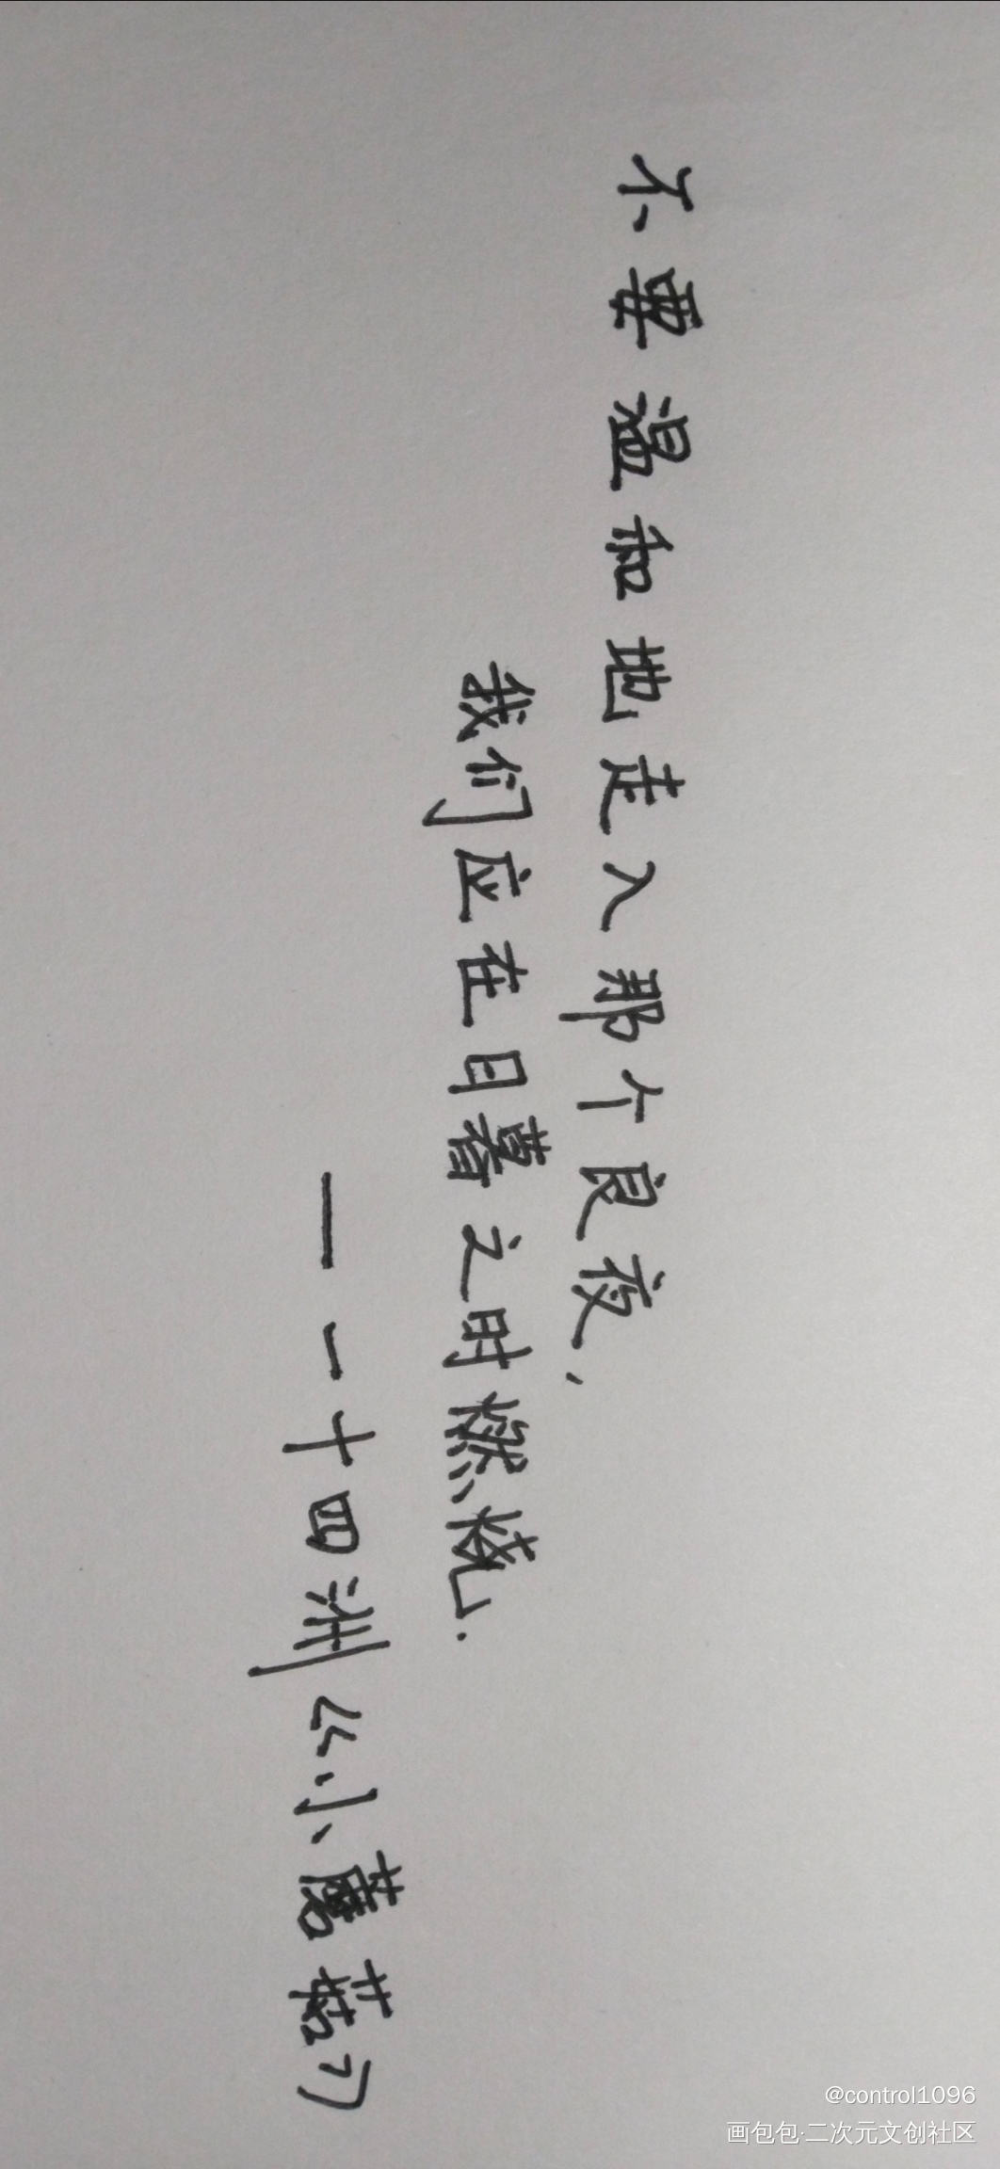 不要温和地走入那个良夜,
我们应在日暮之时燃烧.
——一十四洲《小蘑菇》
@control1096
画包包·二次元文创社区